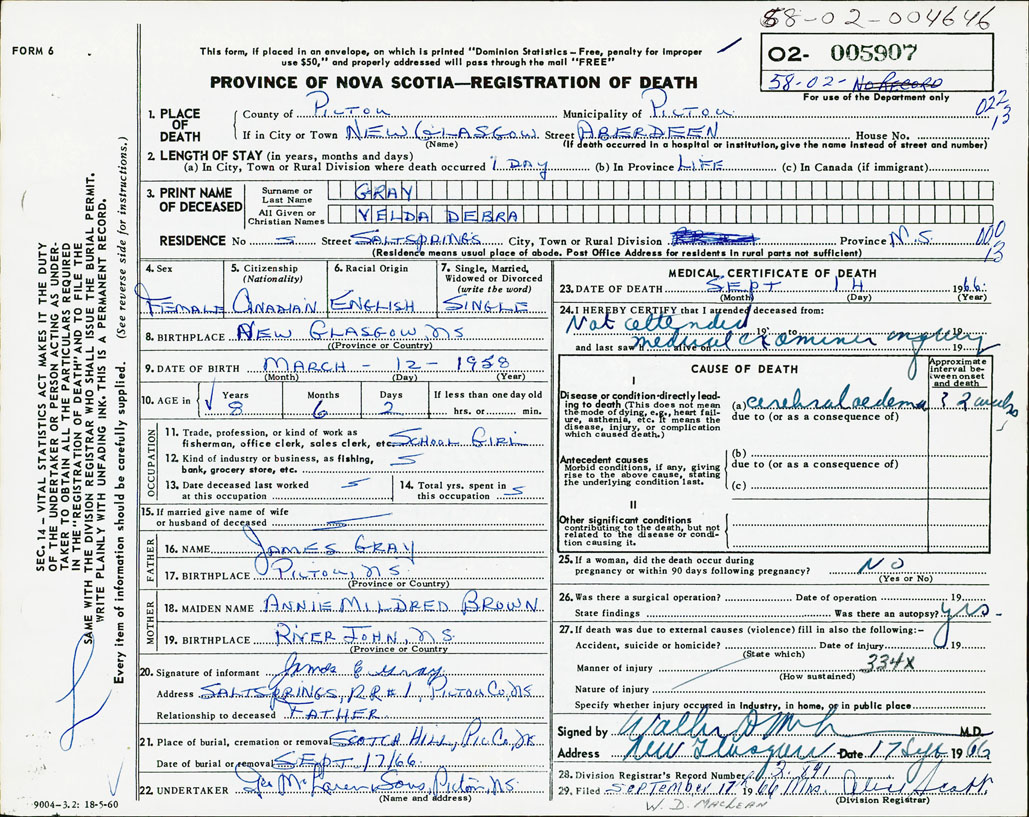 58-02-004646
FORM 6
This form, if placed in an envelope, on which is printed "Dominion Statistics – Free, penalty for improper
use $50," and properly addressed will pass through the mail "FREE"
02- 005907
58-02- No Record
For use of the Department only
PROVINCE OF NOVA SCOTIA—REGISTRATION OF DEATH
022
13
1. PLACE OF DEATH
County of PICTOU Municipality of PICTOU
If in City or Town NEW GLASGOW Street ABERDEEN House No.
(Name) (If death occurred in a hospital or institution, give the name instead of street and number)
2. LENGTH OF STAY (in years, months and days)
(a) In City, Town or Rural Division where death occurred 1 DAY (b) In Province LIFE (c) In Canada (if immigrant)
3. PRINT NAME OF DECEASED
Surname or Last Name GRAY
All Given or Christian Names VELDA DEBRA
RESIDENCE No Street SALTSPRINGS City, Town or Rural Division Province N.S.
000
13
(Residence means usual place of abode. Post Office Address for residents in rural parts not sufficient)
4. Sex FEMALE
5. Citizenship (Nationality) CANADIAN
6. Racial Origin ENGLISH
7. Single, Married, Widowed or Divorced (write the word) SINGLE
8. BIRTHPLACE NEW GLASGOW, NS
(Province or Country)
9. DATE OF BIRTH MARCH - 12 - 1958
(Month) (Day) (Year)
10. AGE in Years 8 Months 6 Days 2 If less than one day old
hrs. or min.
OCCUPATION
11. Trade, profession, or kind of work as
fisherman, office clerk, sales clerk, etc. SCHOOL GIRL
12. Kind of industry or business, as fishing,
bank, grocery store, etc.
13. Date deceased last worked
at this occupation
14. Total yrs. spent in
this occupation
15. If married give name of wife
or husband of deceased
FATHER
16. NAME JAMES GRAY
17. BIRTHPLACE PICTOU, NS.
(Province or Country)
MOTHER
18. MAIDEN NAME ANNIE MILDRED BROWN
19. BIRTHPLACE RIVER JOHN, NS.
(Province or Country
20. Signature of informant James E Gray
Address SALTSPRINGS, R.R #1, PICTOU CO, NS
Relationship to deceased FATHER
21. Place of burial, cremation or removal SCOTCH HILL, PIC CO,
Date of burial or removal SEPT 17/66.
22. UNDERTAKER McLaren Sons, Pictou, NS.
(Name and address)
9004—3.2: 18-5-60
MEDICAL CERTIFICATE OF DEATH
23. DATE OF DEATH SEPT 14 1966
(Month) (Day) (Year)
24. I HEREBY CERTIFY that I attended deceased from:
Not attended 19 to 19
and last saw h alive on 19
medical examiner inquiry
CAUSE OF DEATH
Approximate interval between onset and death
I
Disease or condition directly leading to death (This does not mean the mode of dying, e.g., heart failure, asthenia, etc. It means the disease, injury, or complication which caused death.)
(a) cerebral oedema ? 2 weeks
due to (or as a consequence of)
Antecedent causes
Morbid conditions, if any, giving rise to the above cause, stating the underlying condition last.
(b)
due to (or as a consequence of)
(c)
II
Other significant conditions
contributing to the death, but not related to the disease or condition causing it.
25. If a woman, did the death occur during
pregnancy or within 90 days following pregnancy? NO
(Yes or No)
26. Was there a surgical operation? Date of operation 19
State findings Was there an autopsy? yes
27. If death was due to external causes (violence) fill in also the following:—
Accident, suicide or homicide? Date of injury 19
(State which)
Manner of injury 334X
(How sustained)
Nature of injury
Specify whether injury occurred in industry, in home, or in public place
Signed by M.D.
Address New Glasgow Date 17 Sept 1966
28. Division Registrar's Record Number
29. Filed SEPTEMBER 17th 1966 Mrs. Scott
(Division Registrar)
W. D. MACLEAN
SEC. 14 – VITAL STATISTICS ACT MAKES IT THE DUTY
OF THE UNDERTAKER OR PERSON ACTING AS UNDER-
TAKER TO OBTAIN ALL THE PARTICULARS REQUIRED
IN THE "REGISTRATION OF DEATH" AND TO FILE THE
SAME WITH THE DIVISION REGISTRAR WHO SHALL ISSUE THE BURIAL PERMIT.
WRITE PLAINLY WITH UNFADING INK. THIS IS A PERMANENT RECORD.
Every item of information should be carefully supplied. (See reverse side for instructions.)